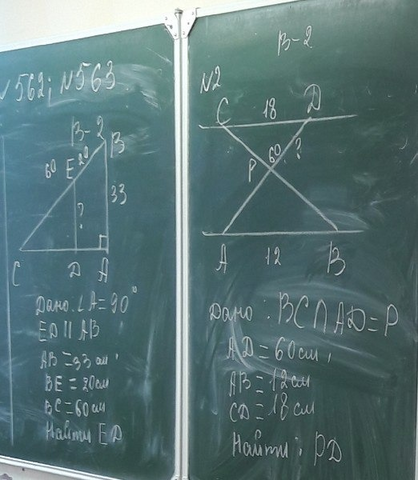 N 562; N 563
В-2
В
60
E
20
33
?
C
D
A
Дано: ∠A = 90°
ED || AB
AB = 33 см,
BE = 20 см
BC = 60 см
Найти ED
В-2
N2
C
18
D
60
?
P
A
12
B
Дано: BC ∩ AD = P
AD = 60 см,
AB = 12 см
CD = 18 см
Найти: PD